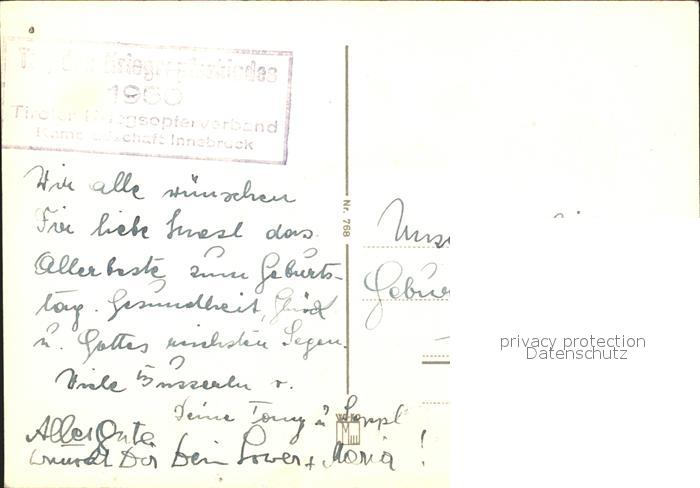 Tag des Kriegsopferkindes
1960
Tiroler Kriegsopferverband
Kameradschaft Innsbruck
Wir alle wünschen
Dir liebe das
Allerbeste zum Geburts-
tag. Gesundheit, Glück
u. Gottes reichsten Segen.
Viele Busserln v.
Deine Tony u. Seppl
Alles Gute
wünscht Dir Dein + Maria !
Nr. 768
privacy protection
Datenschutz